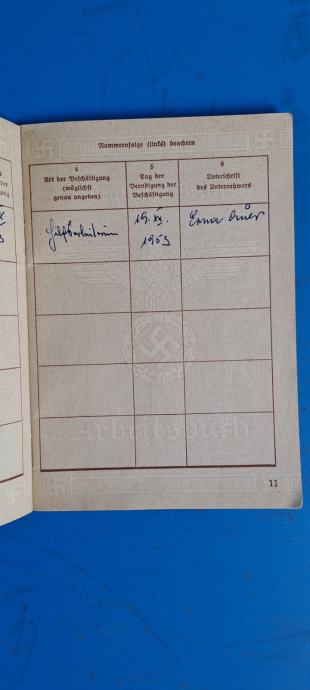 Nummernfolge (links) beachten
4
Art der Beschäftigung
(möglichst
genau angeben)
5
Tag der
Beendigung der
Beschäftigung
6
Unterschrift
des Unternehmers
Hilfsarbeiterin
19. XII.
1953
Erna
Arbeitsbuch
11